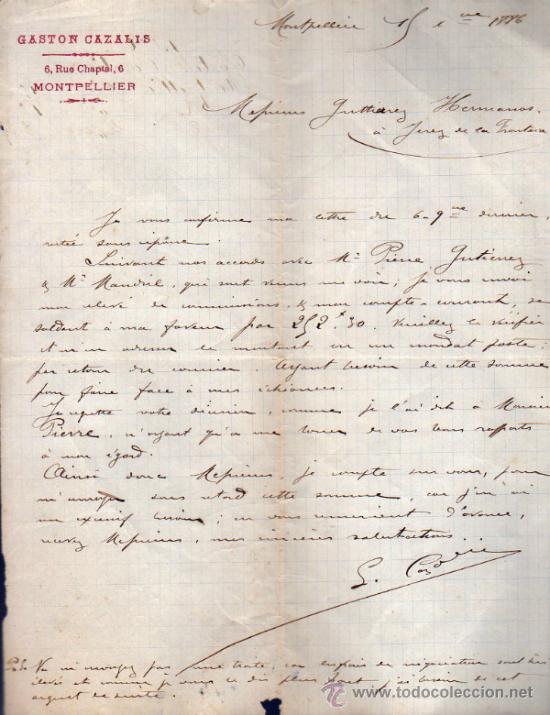 GASTON CAZALIS
6, Rue Chaptal, 6
MONTPELLIER
Montpellier 15 1886
Messieurs Guttierez Hermanos.
à Jerez de la Frontera
Je vous confirme ma lettre du 6 dernier,
restée sans réponse.
Suivant nos accords avec Mr Pierre Gutierrez
& Mr qui sont venus me voir; je vous envoi
mon relevé de commissions, & mon compte-courant, se
soldant à ma faveur par 252.30. Veuillez le vérifier
et m'en adresser le montant en un mandat poste
par retour du courrier. Ayant besoin de cette somme
pour faire face à mes échéances.
Je regrette votre décision, comme je l'ai dit à Monsieur
Pierre, n'ayant qu'à me louer de vos bons rapports
à mon égard.
Ainsi donc Messieurs, je compte sur vous, pour
m'envoyer sans retard cette somme, car j'en ai
un excessif besoin; en vous remerciant d'avance,
recevez Messieurs, mes sincères salutations..
G. Cazalis
P.S. Ne m'envoyez pas une traite, car les frais de négociation sont très
élevés et comme je vous le dis plus haut, j'ai besoin de cet
argent de suite.
todocoleccion
www.todocoleccion.net